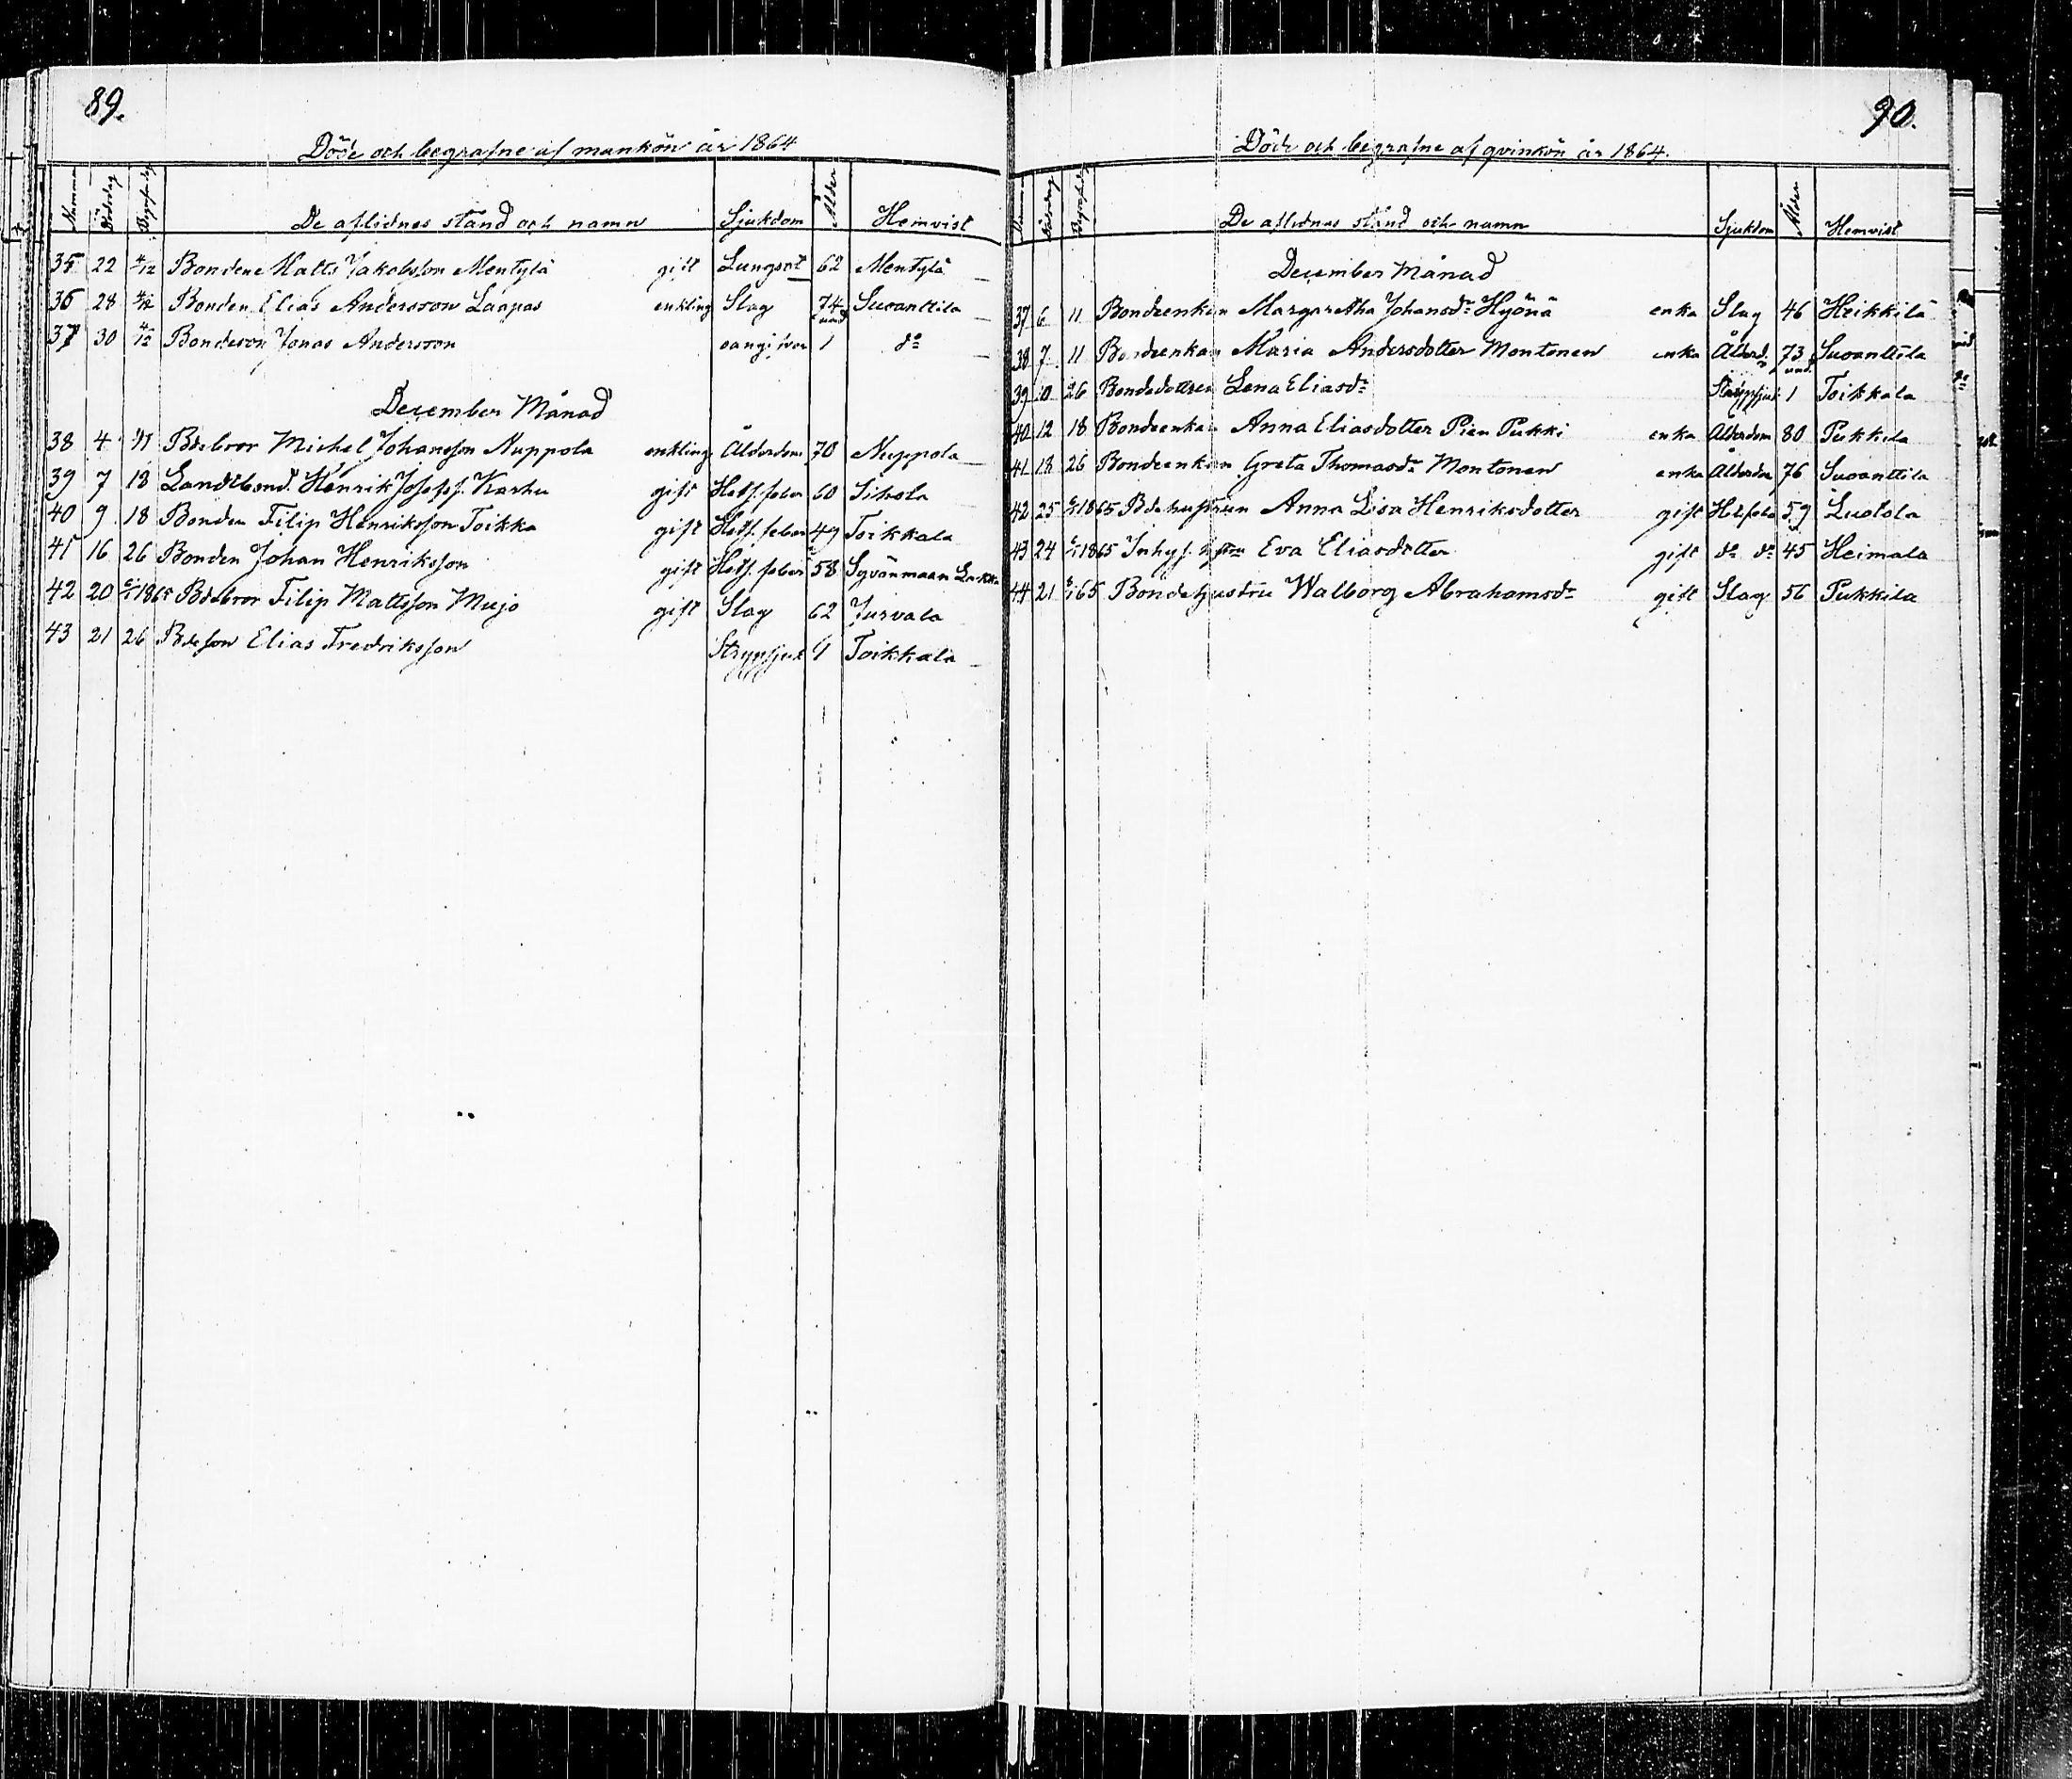 89.
Döde och begrafne af mankön år 1864
Numma Dödsdag Begrafn.dg De aflidnes stånd och namn Sjukdom Ålder Hemvist
35 22 4/12 Bonden Matts Jakobsson Mentylä gift Lungsot 62 Mentylä
36 28 4/12 Bonden Elias Andersson Laapas enkling Slag 74 Suoanttila
37 30 4/12 Bondeson Jonas Andersson oangifven 1 månd do
December Månad
38 4 11 Bdebror Michel Johansson Nuppola enkling Ålderdom 70 Nuppola
39 7 18 Landtbond. Henrik Josefss. Karhu gift Hets. feber 60 Sihola
40 9 18 Bonden Filip Henriksson Toikka gift Hets. feber 49 Toikkala
41 16 26 Bonden Johan Henriksson gift Hets. feber 58 Syvänmaan
42 20 6/1 1865 Bdebror Filip Mattsson Mujo gift Slag 62 Jurvala
43 21 26 Bdeson Elias Fredriksson Strypsjuk 1 Toikkala
90.
Döde och begrafne af qvinkön år 1864.
Dödsdag Begrafn.dg De aflidnes stånd och namn Sjukdom Ålder Hemvist
December Månad
37 6 11 Bondeenkan Margaretha Johansdr Hyönä enka Slag 46 Heikkilä
38 7 11 Bondeenkan Maria Andersdotter Montonen enka Ålderd. 73 Suoanttila
39 10 26 Bondedottren Lena Eliasdr Strypsjuk 1 Toikkala
40 12 18 Bondeenkan Anna Eliasdotter Pien Pukki enka Ålderdom 80 Pukkila
41 18 26 Bondeenkan Greta Thomasdr Montonen enka Ålderdom 76 Suoanttila
42 25 6/1 1865 Bdehustrun Anna Lisa Henriksdotter gift Hetsfeber 59 Luotola
43 24 6/1 1865 Inhys. Eva Eliasdotter gift do do 45 Heimala
44 21 6/1 65 Bondehustru Walborg Abrahamsdr gift Slag 56 Pukkila